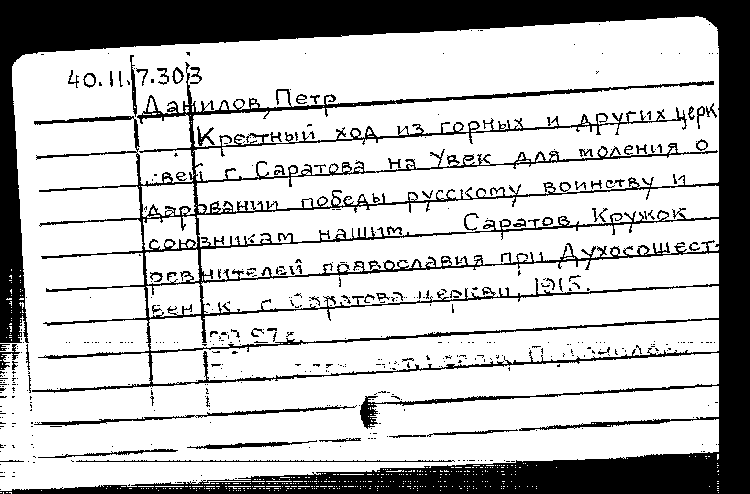 40.11.7.303
Данилов, Петр
Крестный ход из горных и других церк-
вей г. Саратова на Увек для моления о
даровании победы русскому воинству и
союзникам нашим. Саратов, Кружок
ревнителей православия при Духосошест-
венск. г. Саратова церкви, 1915.
П. Данилов.